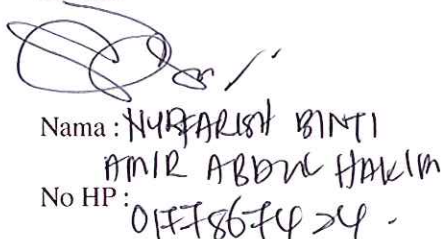 Nama : NURFARISH BINTI
AMIR ABDUL HAKIM
No HP :
0177867424 .